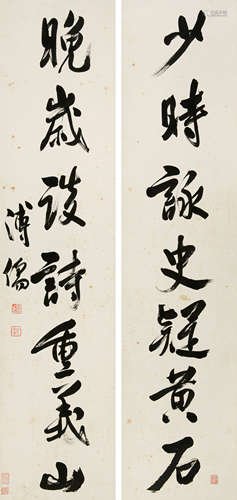 少時詠史疑黃石
晚歲談詩重義山
溥儒